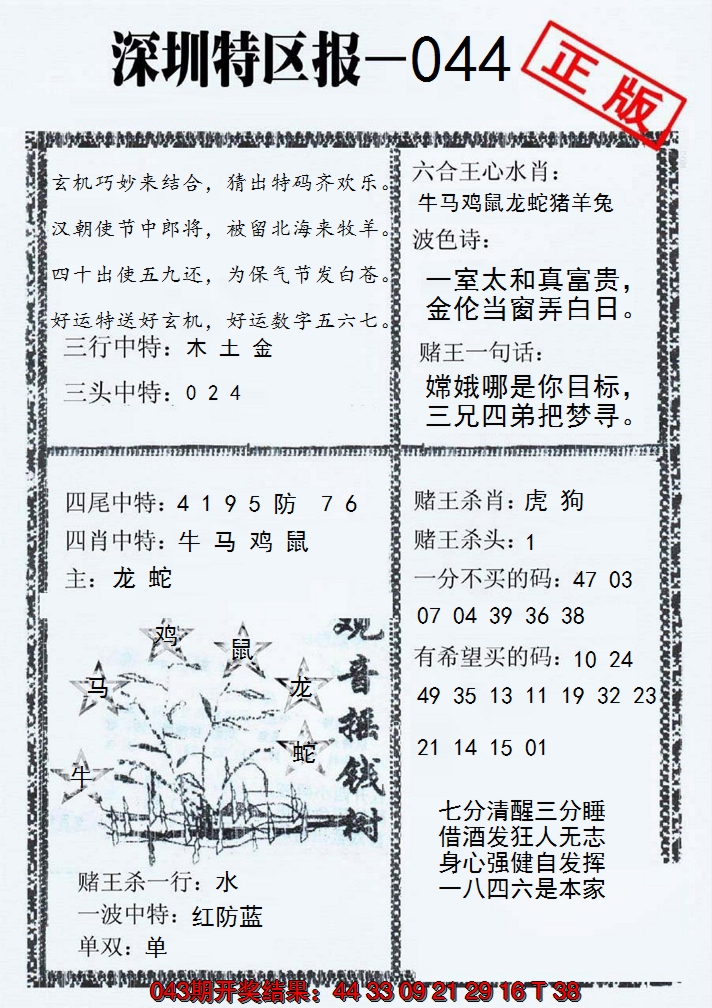 深圳特区报-044
正版
玄机巧妙来结合，猜出特码齐欢乐。
汉朝使节中郎将，被留北海来牧羊。
四十出使五九还，为保气节发白苍。
好运特送好玄机，好运数字五六七。
三行中特：木 土 金
三头中特：0 2 4
六合王心水肖：
牛马鸡鼠龙蛇猪羊兔
波色诗：
一室太和真富贵，
金伦当窗弄白日。
赌王一句话：
嫦娥哪是你目标，
三兄四弟把梦寻。
四尾中特：4 1 9 5 防 7 6
四肖中特：牛 马 鸡 鼠
主：龙 蛇
鸡
鼠
马
龙
蛇
牛
观音摇钱树
赌王杀一行：水
一波中特：红防蓝
单双：单
赌王杀肖：虎 狗
赌王杀头：1
一分不买的码：47 03
07 04 39 36 38
有希望买的码：10 24
49 35 13 11 19 32 23
21 14 15 01
七分清醒三分睡
借酒发狂人无志
身心强健自发挥
一八四六是本家
043期开奖结果：44 33 09 21 29 16 T 38